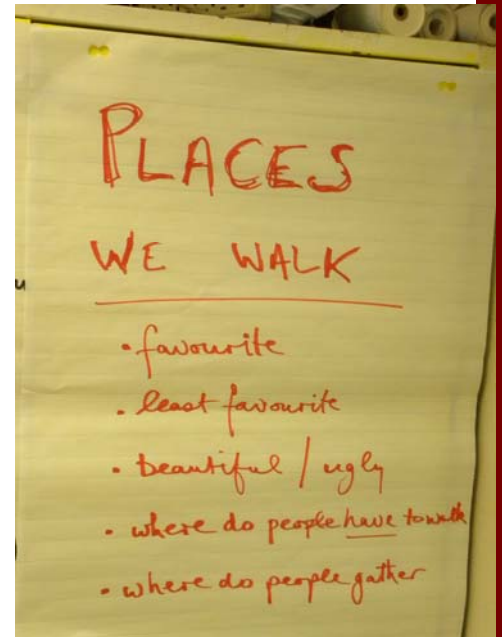 PLACES
WE WALK
• favourite
• least favourite
• beautiful / ugly
• where do people have to walk
• where do people gather